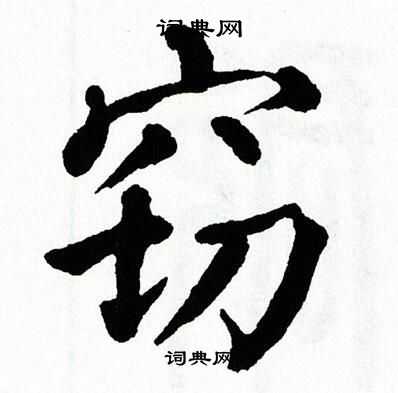 词典网
窃
词典网